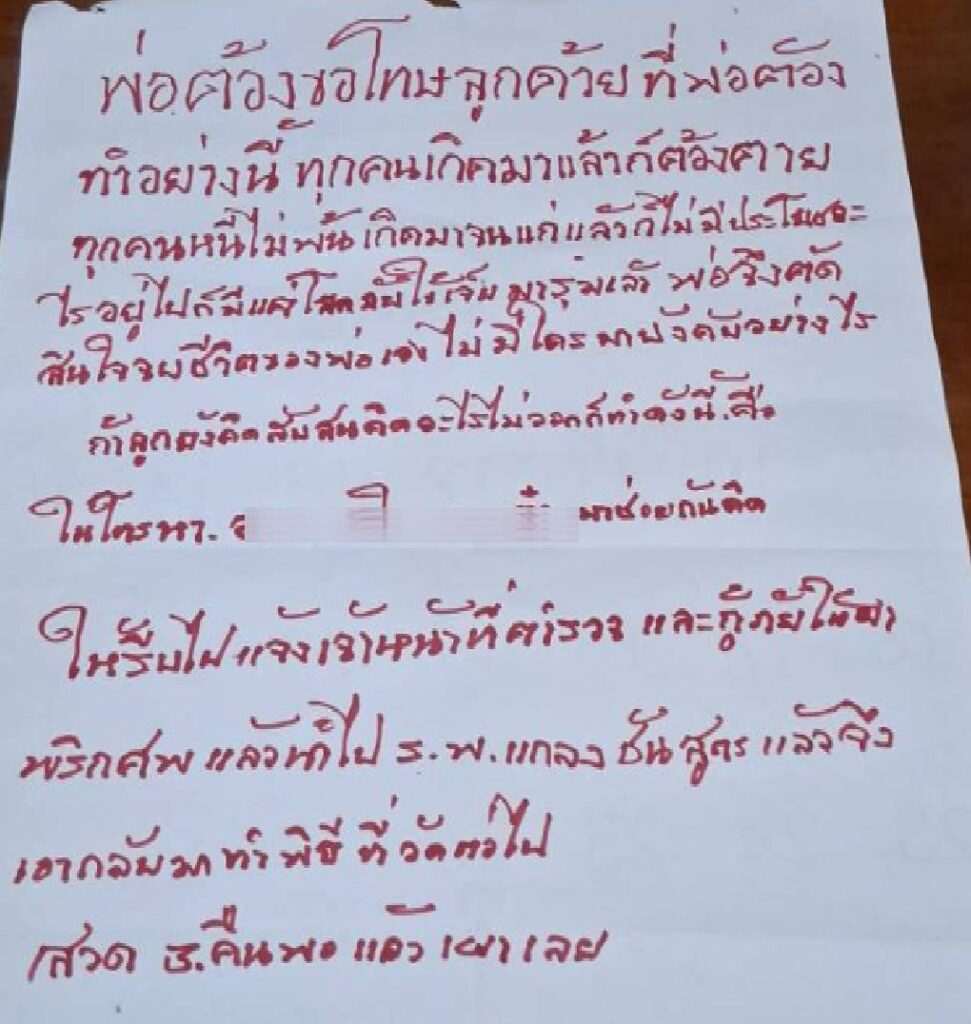 พ่อต้องขอโทษลูกด้วย ที่พ่อต้อง
ทำอย่างนี้ ทุกคนเกิดมาแล้วก็ต้องตาย
ทุกคนหนีไม่พ้น เกิดมาจนแก่แล้วก็ไม่มีประโยชอะ
ไรอยู่ไปก็มีแต่โรคภัยไข้เจ็บมารุมแล้ว พ่อจึงตัด
สินใจจบชีวิตของพ่อเอง ไม่มีใครมาบังคับอย่างไร
ถ้าลูกยังคิดสับสนคิดอะไรไม่ออกก็ทำดังนี้.คือ
ให้โทรหา. มาช่วยกันคิด
ให้รีบไปแจ้งเจ้าหน้าที่ตำรวจ และกู้ภัยให้มา
พริกศพ แล้วนำไป ร.พ.แกลง ชันสูตร แล้วจึง
เอากลับมาทำพิธี ที่วัดต่อไป
สวด 3.คืนพอ แล้วเผาเลย